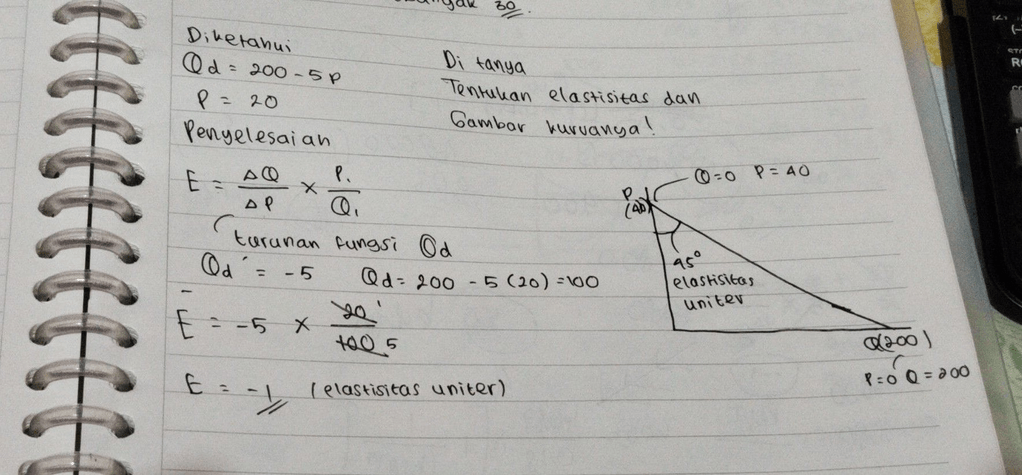 30
Diketahui
Qd = 200 - 5P
P = 20
Di tanya
Tentukan elastisitas dan
Gambar kurvanya!
Penyelesaian
E = ΔQ/ΔP × P₁/Q₁
turunan fungsi Qd
Qd' = -5 Qd = 200 - 5 (20) = 100
E = -5 × 20/100 1 5
E = -1 (elastisitas uniter)
Q=0 P=40
P
(40)
45°
elastisitas
uniter
Q(200)
P=0 Q=200